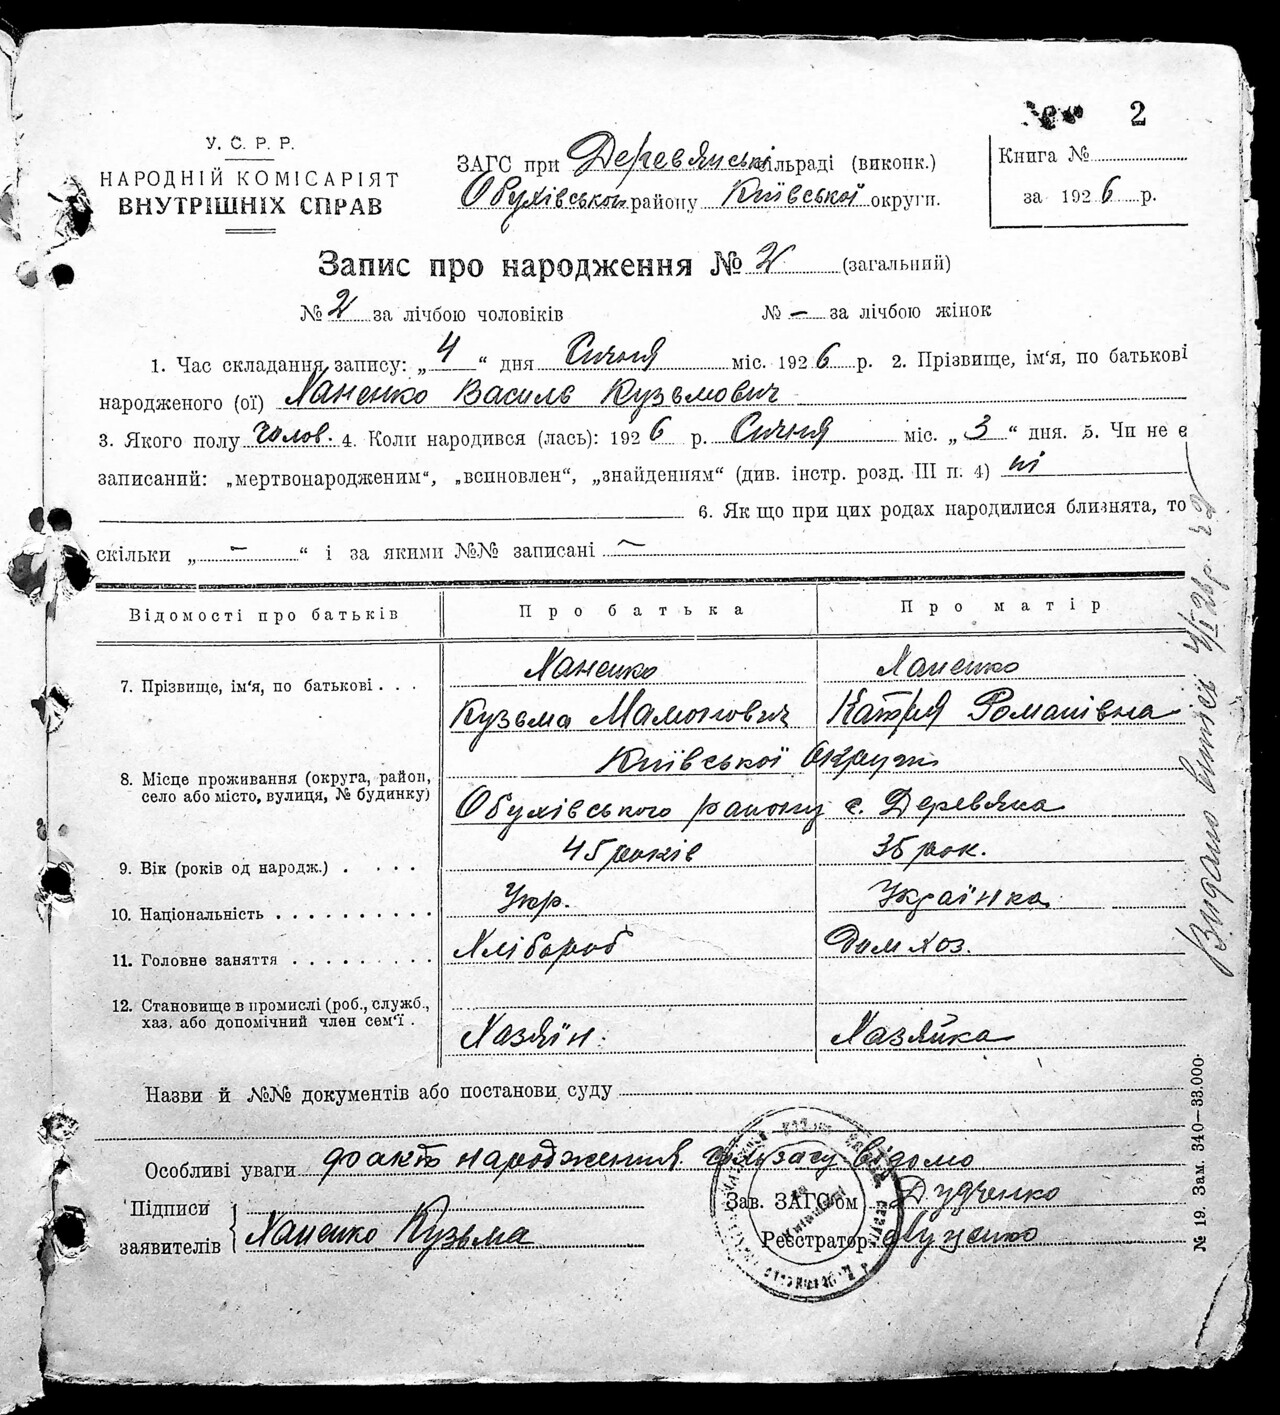 2
У. С. Р. Р.
НАРОДНІЙ КОМІСАРІЯТ
ВНУТРІШНІХ СПРАВ
ЗАГС при Деревянській сільраді (виконк.)
Обухівського району Київської округи.
Книга №
за 1926 р.
Запис про народження № 2 (загальний)
№ 2 за лічбою чоловіків № – за лічбою жінок
1. Час складання запису: „4“ дня Січня міс. 1926 р. 2. Прізвище, ім‘я, по батькові
народженого (ої) Ханенко Василь Кузьмович
3. Якого полу чолов. 4. Коли народився (лась): 1926 р. Січня міс. „3“ дня. 5. Чи не є
записаний: „мертвонародженим“, „вспновлен“, „знайденням“ (див. інстр. розд. III п. 4) ні
6. Як що при цих родах народилися близнята, то
скільки „ – “ і за якими №№ записані –
Відомості про батьків Про батька Про матір
7. Прізвище, ім‘я, по батькові . . . Ханенко Ханенко
Кузьма Мамонович Катря Романівна
8. Місце проживання (округа, район, село або місто, вулиця, № будинку) Київської Округи
Обухівського району с. Деревяна
9. Вік (років од народж.) . . . . 45 років 35 рок.
10. Національність . . . . . . . . . . Укр. Українка
11. Головне заняття . . . . . . . . . Хлібороб Дом хоз.
12. Становище в промислі (роб., служб.,
хаз. або допомічний член сем‘ї . Хазяїн. Хазяйка
Назви й №№ документів або постанови суду
Особливі уваги факт народження загсу відомо
Підписи
заявителів Ханенко Кузьма
Зав. ЗАГС‘ом Дудченко
Реєстратор Луценко
№ 19. Зам. 340—33.000.
Видано витяг